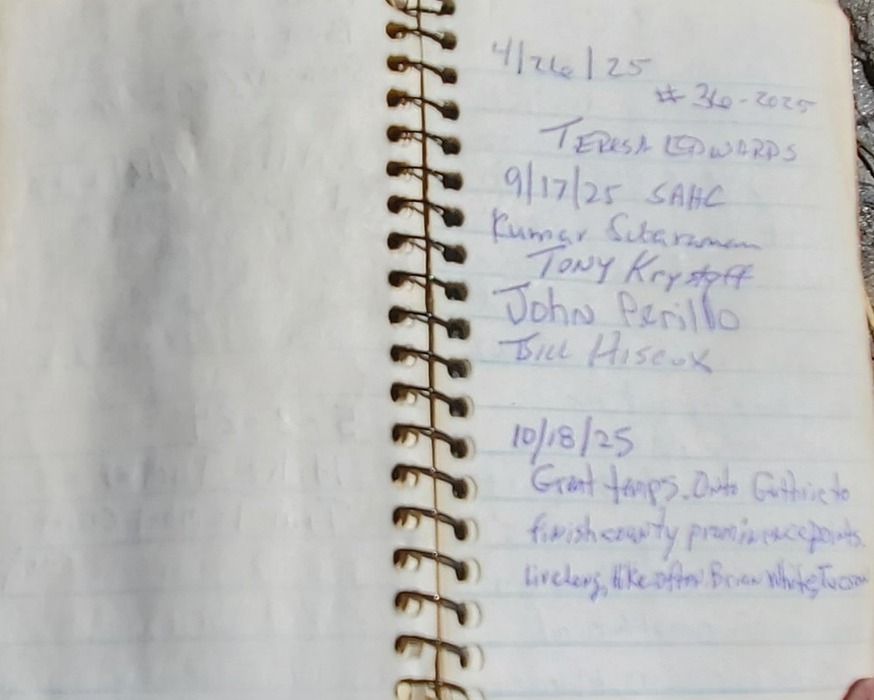 4/26/25
# 36-2025
TERESA EDWARDS
9/17/25 SAHC
Kumar Sitaraman
TONY Krystoff
John Perillo
BILL HISCOX
10/18/25
Great temps. Onto Guthrie to
finish county prominence points.
Live long, hike often. Brian White, Tucson